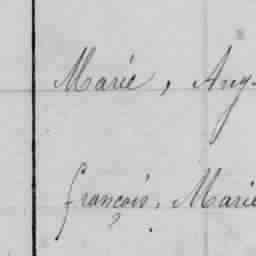 Marie, Aug
françois, Marie